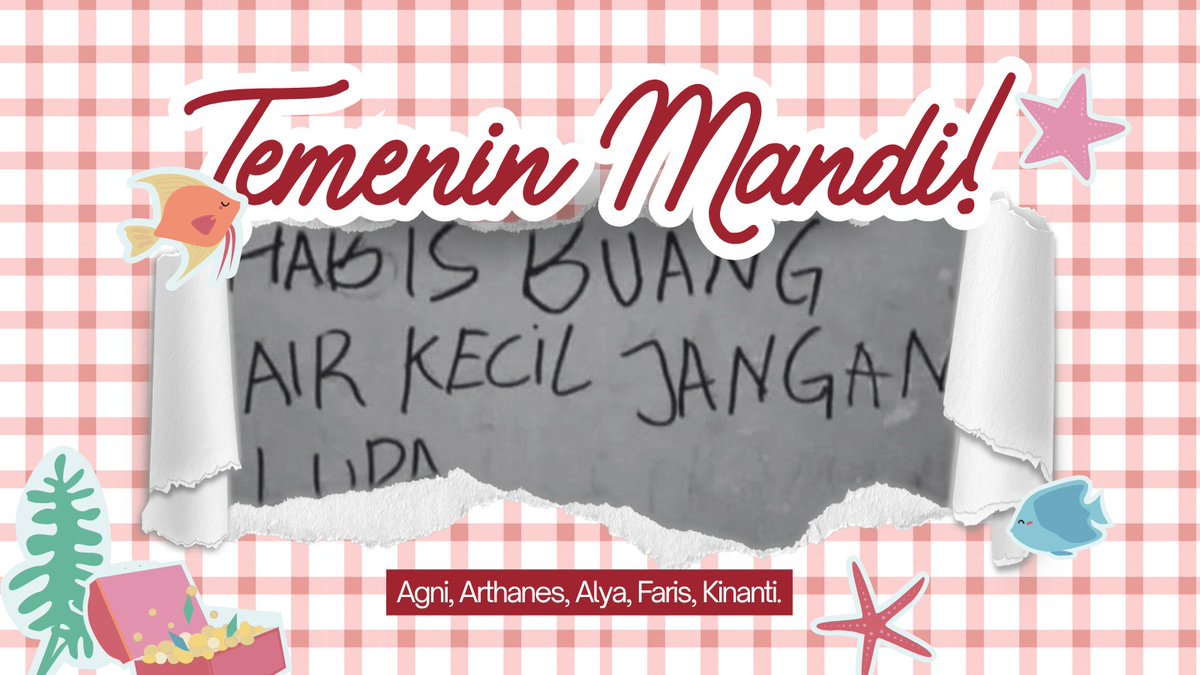 Temenin Mandi!
HABIS BUANG
AIR KECIL JANGAN
LUPA
Agni, Arthanes, Alya, Faris, Kinanti.